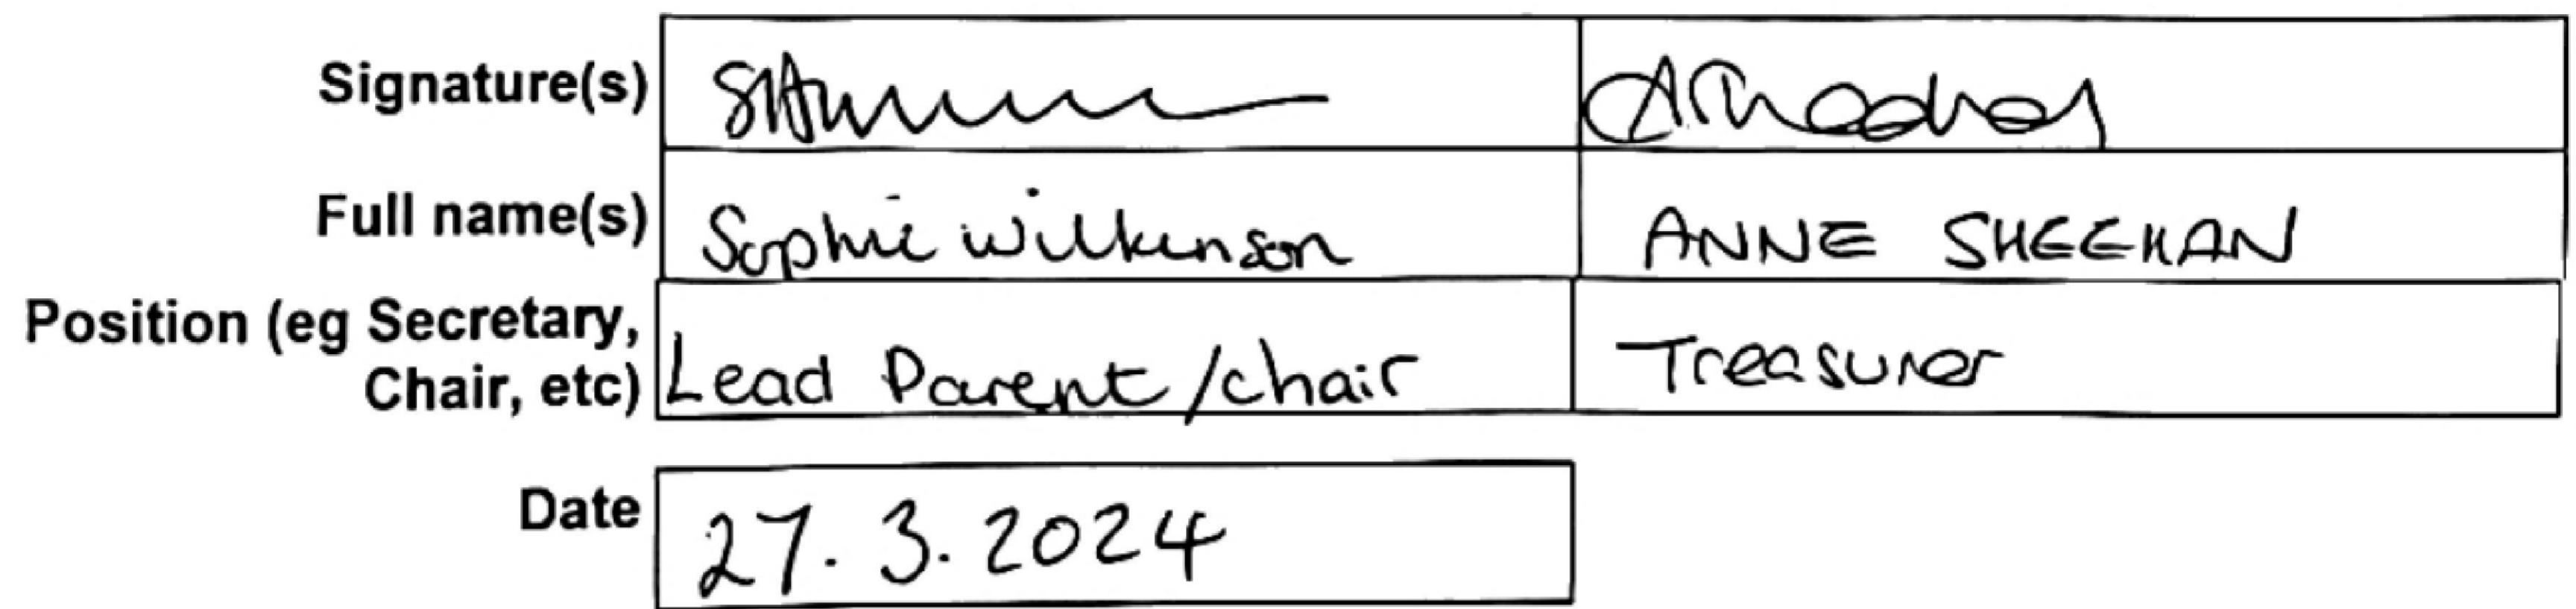 Signature(s)
Full name(s) Sophie Wilkinson ANNE SHEEHAN
Position (eg Secretary,
Chair, etc) Lead Parent/chair Treasurer
Date 27.3.2024